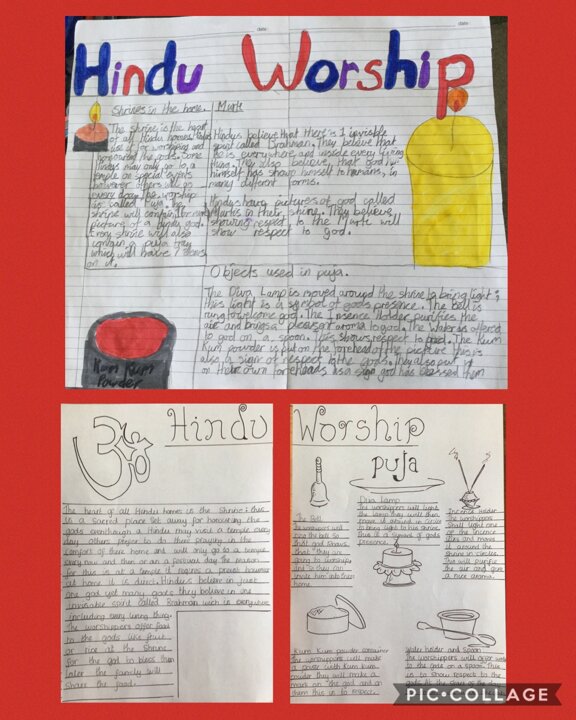 date:
date:
Hindu Worship
Shrines in the home.
The shrine is the heart
of all Hindu homes. Hindus
use it for worshiping and
honouring the gods. Some
Hindus may only go to a
temple on special events
however others will go
every day. The worship
is called Puja. The
shrine will contain
picture of a Hindu god.
Every shrine will also
contain a puja tray
which will have 7 items
on it.
Murti
Hindus believe that there is 1 invisible
spirit called Brahman. They believe that
he is everywhere, and inside every living
thing. They also believe that god
himself has shown himself to humans, in
many different forms.
Hindus have pictures of god called
Murtis in their shrine. They believe
showing respect to the Murti will
show respect to god.
Kum Kum
Powder
Objects used in puja.
The Diva Lamp is moved around the shrine to bring light;
this light is a symbol of gods presence. The Bell is
rung to welcome god. The Insence Holder purifies the
air and brings a pleasent aroma to god. The Water is offered
to god on a spoon. This shows respect to god. The Kum
Kum powder is put on the forehead of the picture this is
also a sign of respect to the gods. They also put it
on their own foreheads as a sign god has blessed them
Hindu
The heart of all Hindu homes is the Shrine; this
is a sacred place set away for honouring the
gods eventhough a hindu may visit a temple every
day others prefer to do there praying in the
comfort of there home and will only go to a temple
every now and then or on a festival day the reason
for this is at a temple it requires a priest however
at home it is direct. Hindu's believe in just
one god yet many gods they believe in one
invisible spirit called Brahman wich is everywhere
including every living thing.
The worshippers offer food
to the gods like fruit
or rice at the Shrine
for the god to bless then
later the family will
share the food.
Worship
puja
The Bell
The worshippers will
ring the bell to
that god
that they are
going to worship
and
invite him into there
home.
Diva Lamp
The worshippers will light
the lamp they will then
move it around in circle
to bring light to his shrine
this is a symbol of gods
presence.
Incense holder
The worshippers
shall light one
of the incense
sticks and move
it around the
shrine in circles.
This will purify
the air and give
a nice aroma.
Kum Kum powder container
The worshippers will make
a paste with Kum Kum
powder they will make a
mark on the god and on
them this is to respect.
Water holder and Spoon
The worshippers will offer water
to the gods on a spoon. This
is to show respect to the
gods. At the
PIC•COLLAGE